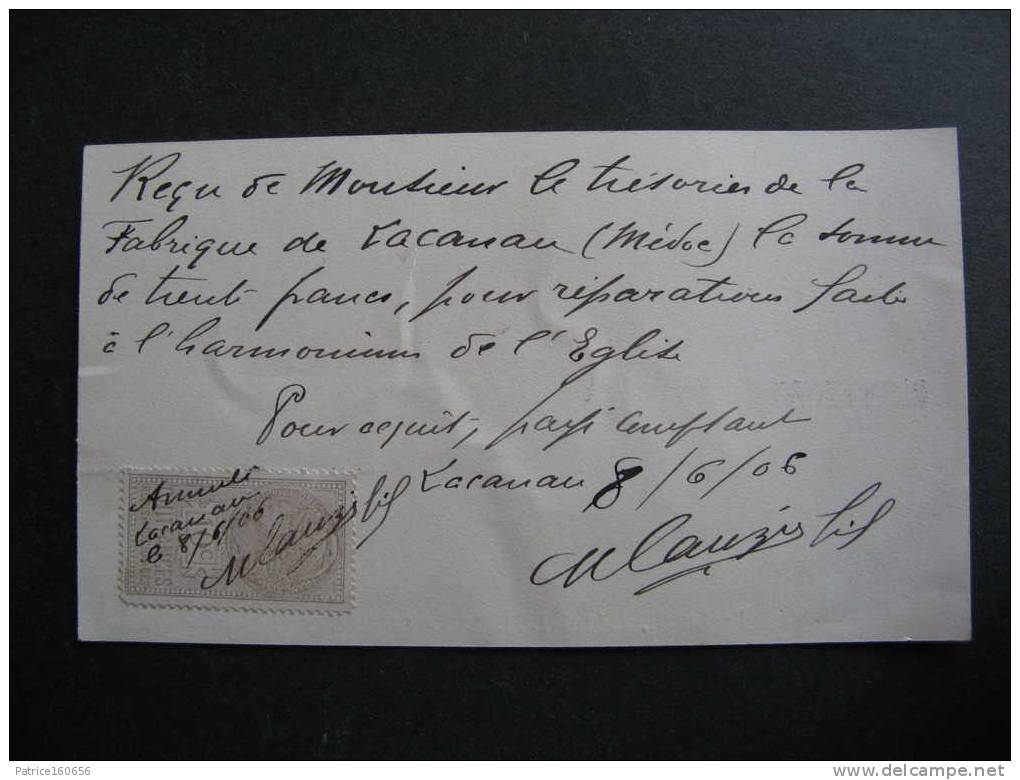 Reçu de Monsieur le trésorier de la
Fabrique de Lacanau (Médoc) la somme
de trente francs, pour réparations faites
à l'harmonium de l'Eglise
Pour acquit, payé comptant
Lacanau 8/6/06
Annulé
Lacanau
le 8/6/06
Patrice160656
delcampe.net